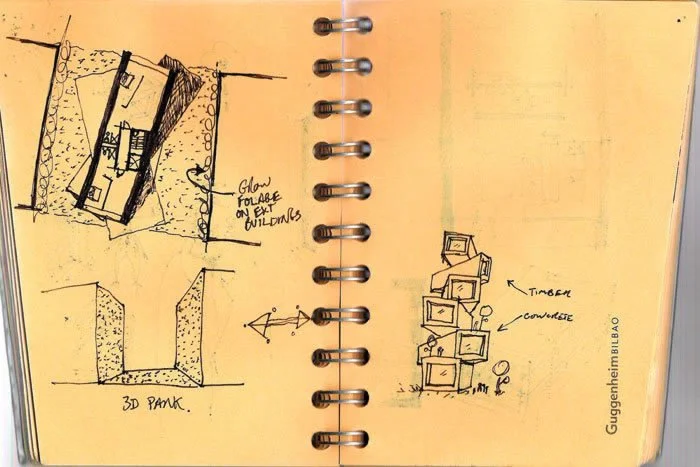 GROW
FOLAGE
ON EXT
BUILDINGS
3D PARK.
TIMBER
CONCRETE
Guggenheim BILBAO